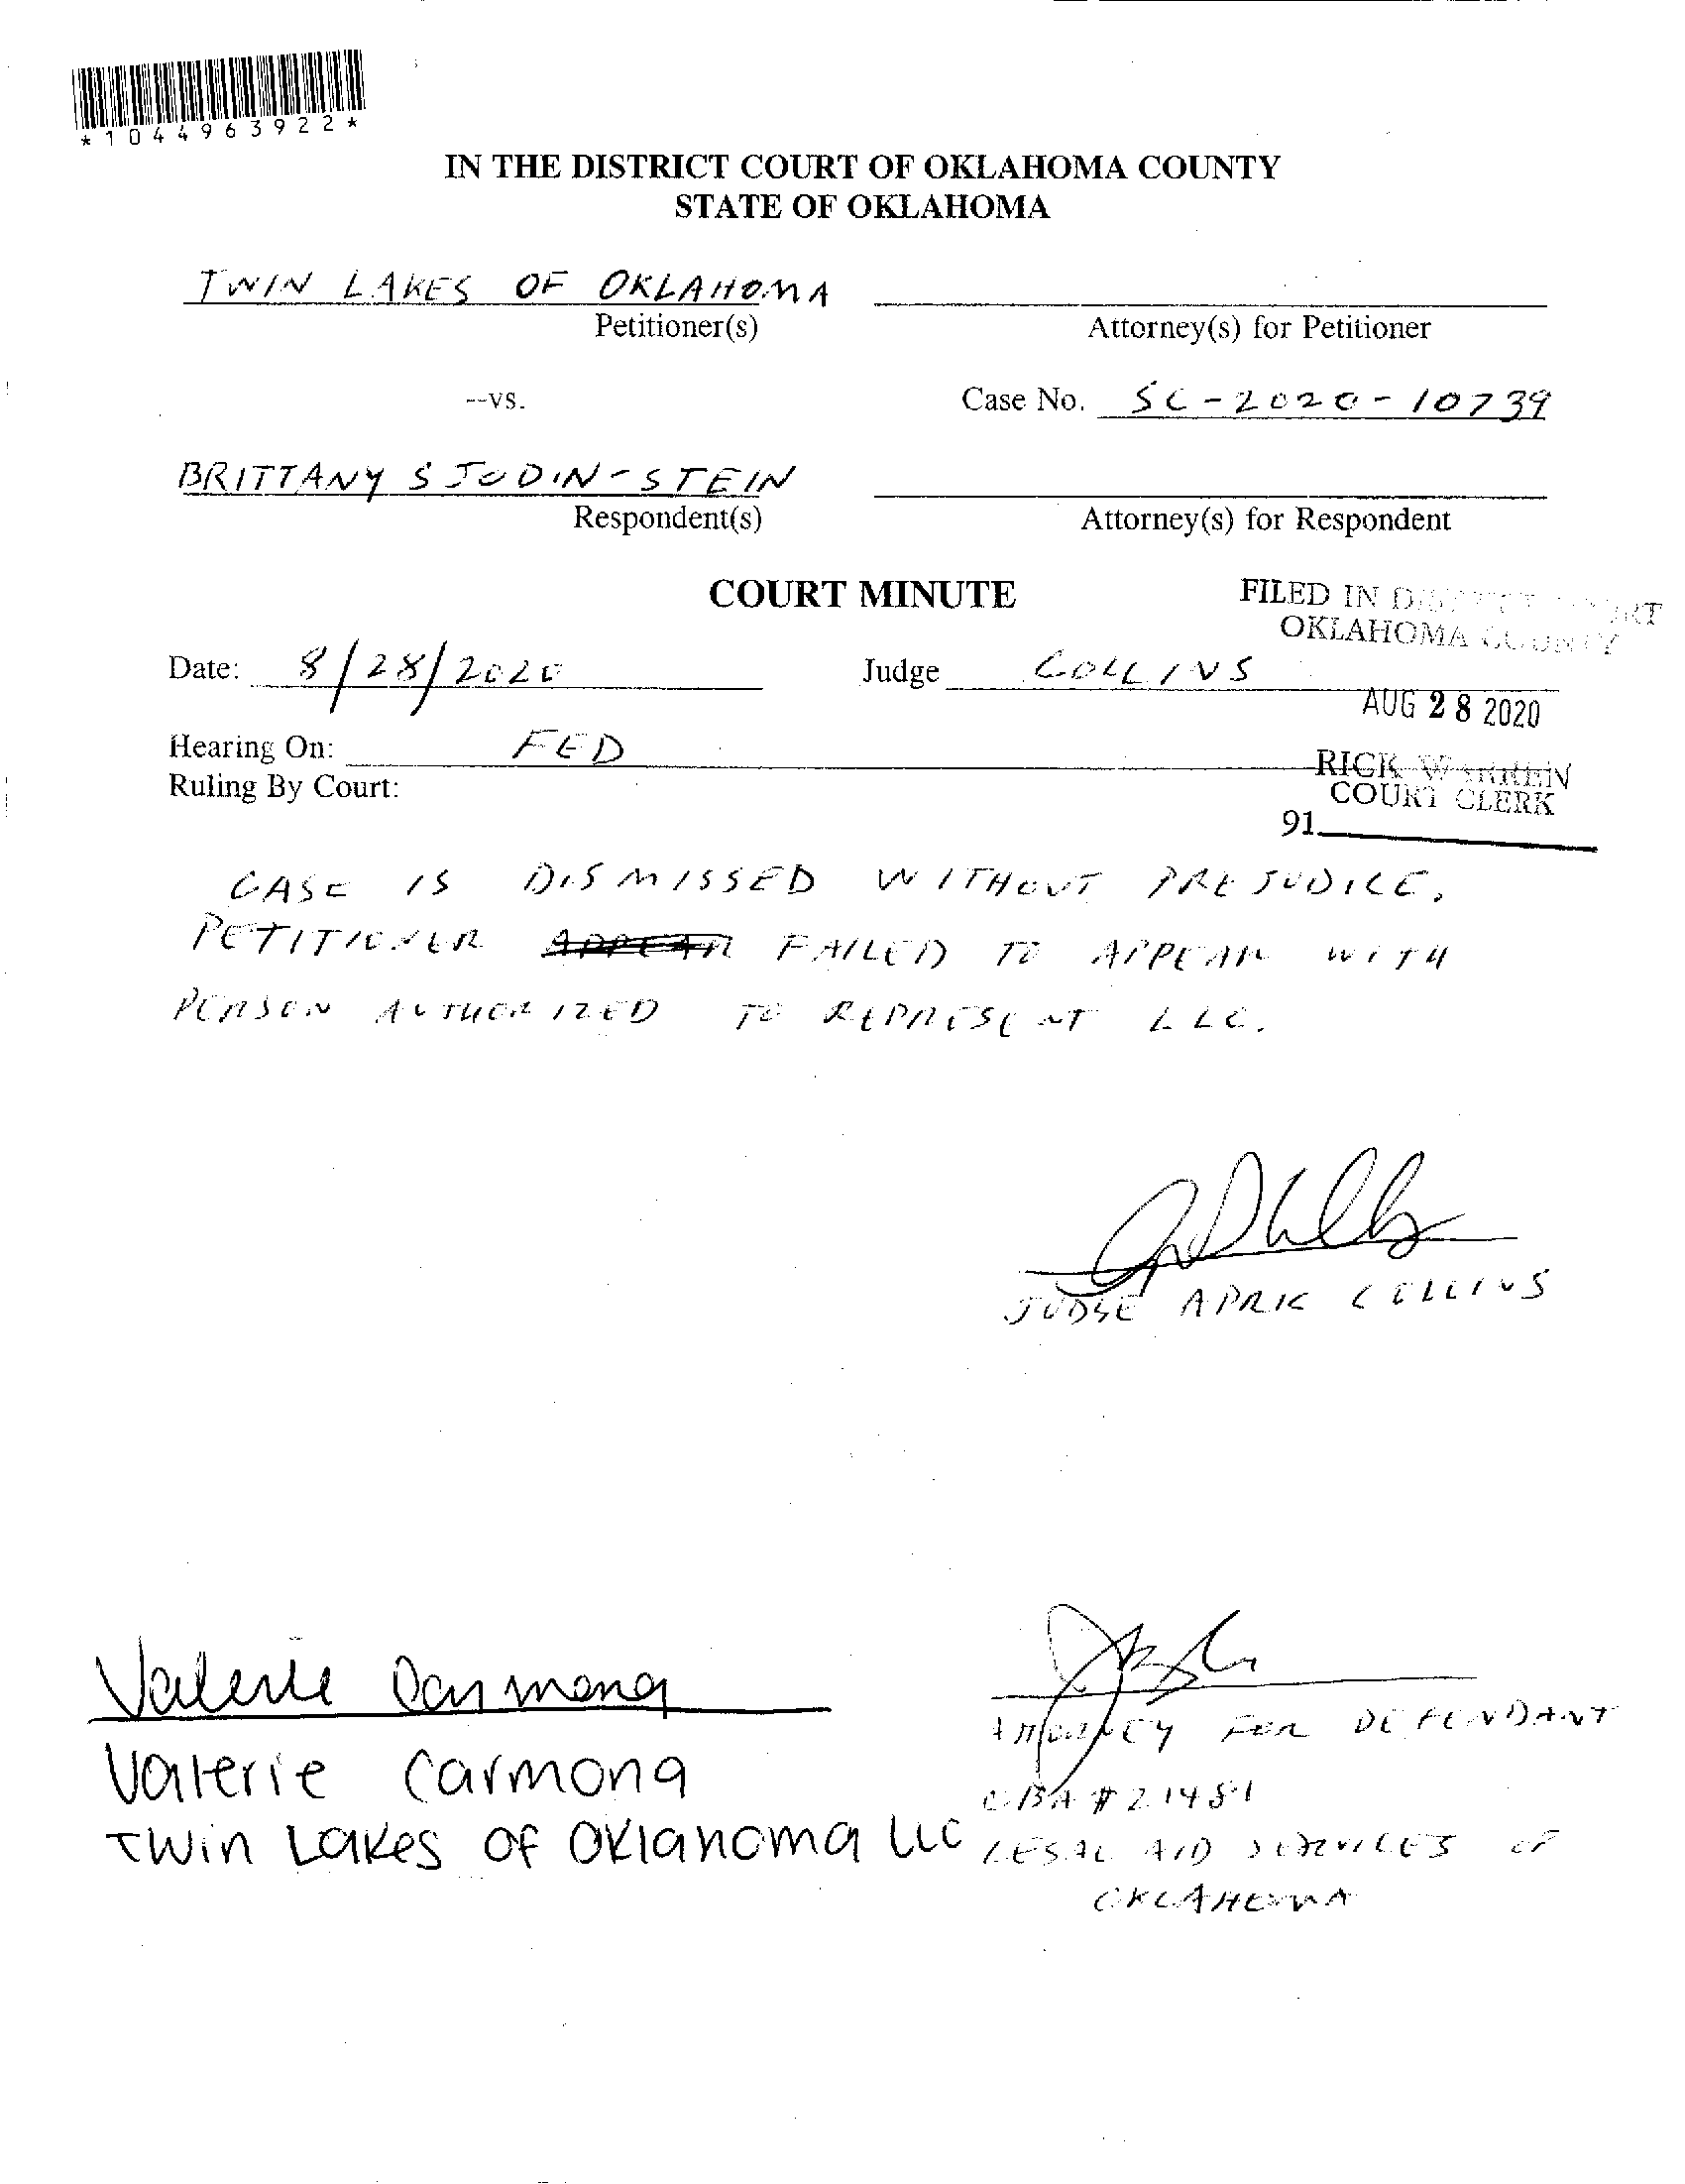 *1044963922*
IN THE DISTRICT COURT OF OKLAHOMA COUNTY
STATE OF OKLAHOMA
TWIN LAKES OF OKLAHOMA
Petitioner(s)
Attorney(s) for Petitioner
--vs.
Case No. SC-2020-10739
BRITTANY SJODIN-STEIN
Respondent(s)
Attorney(s) for Respondent
COURT MINUTE
FILED IN DISTRICT COURT
OKLAHOMA COUNTY
Date: 8/28/2020
Judge COLLINS
AUG 28 2020
Hearing On: FED
RICK WARREN
COURT CLERK
Ruling By Court:
91
CASE IS DISMISSED WITHOUT PREJUDICE.
PETITIONER APPEAR FAILED TO APPEAR WITH
PERSON AUTHORIZED TO REPRESENT LLC.
JUDGE COLLINS
Valerie Carmona
Valerie Carmona
Twin Lakes of Oklahoma LLC
ATTORNEY FOR DEFENDANT
OBA # 21481
LEGAL AID SERVICES OF
OKLAHOMA